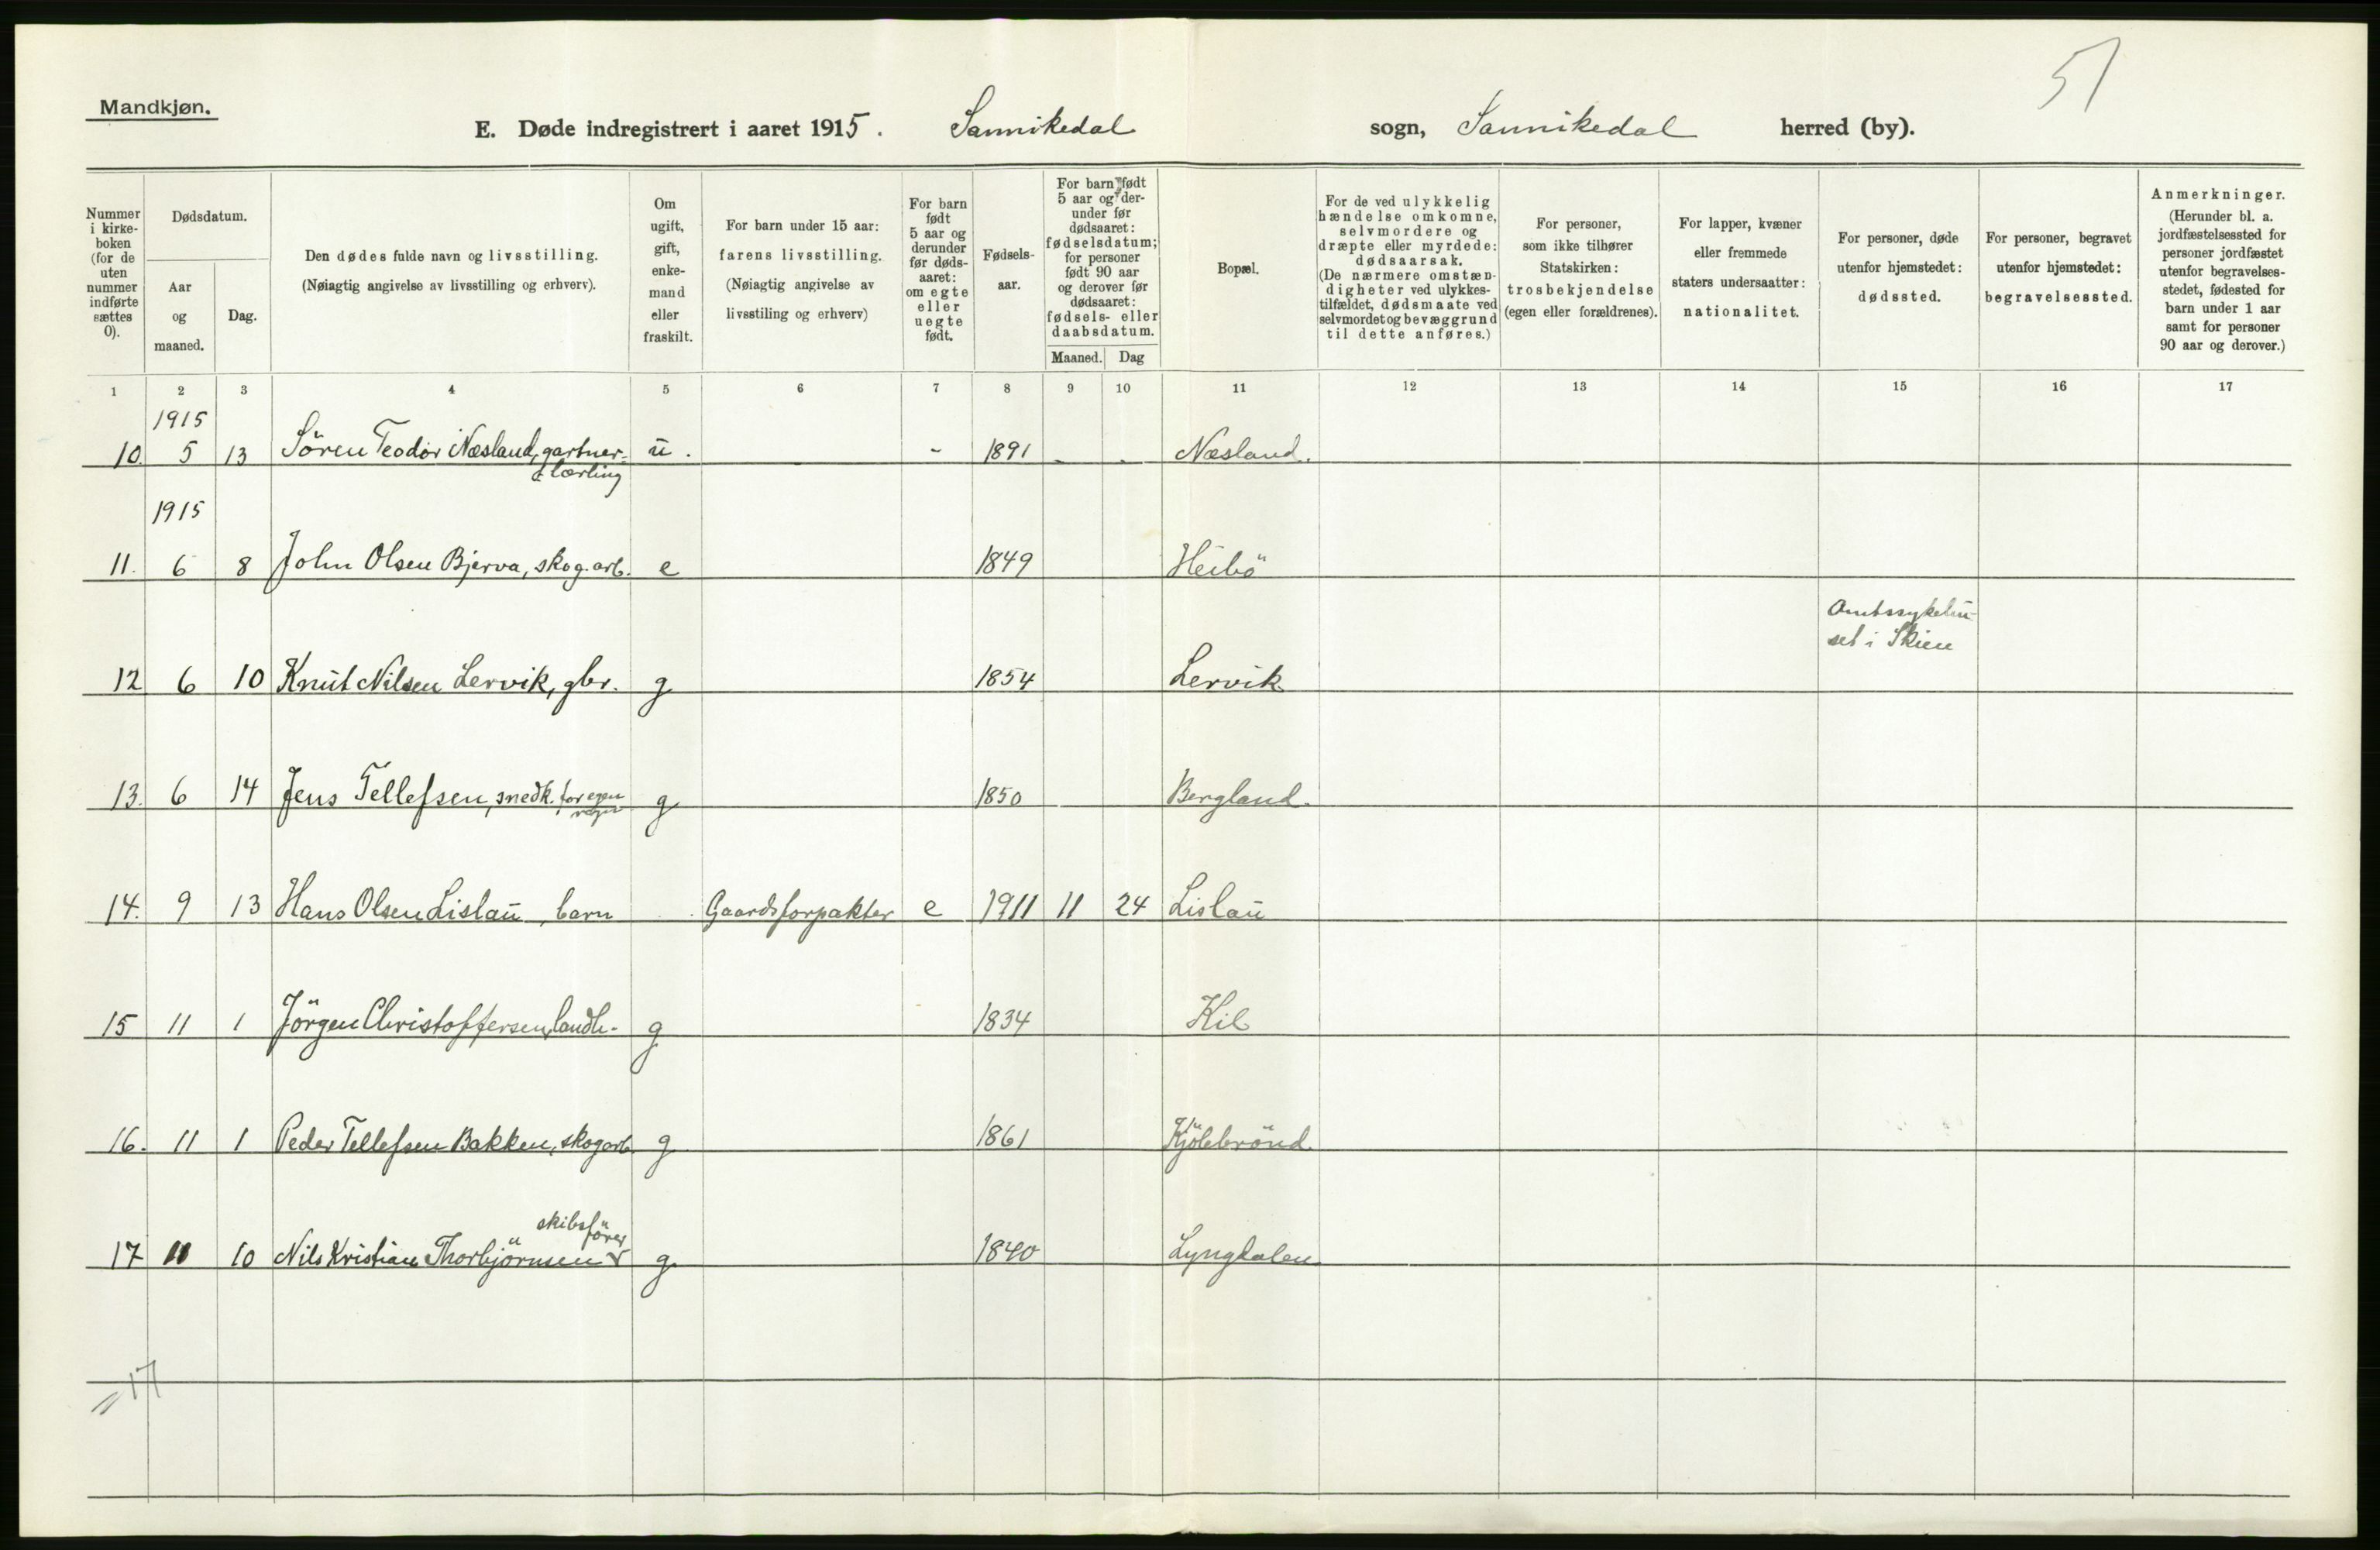 51
Mandkjøn.
E. Døde indregistrert i aaret 1915. Sannikedal sogn, Sannikedal herred (by).
Nummer i kirke-boken (for de uten nummer indførte sættes 0).
Dødsdatum.
Aar og maaned.
Dag.
Den dødes fulde navn og livsstilling.
(Nøiagtig angivelse av livsstilling og erhverv).
Om ugift, gift, enke-mand eller fraskilt.
For barn under 15 aar: farens livsstilling.
(Nøiagtig angivelse av livsstiling og erhverv)
For barn født 5 aar og derunder før døds-aaret: om egte eller uegte født.
Fødsels-aar.
For barn født 5 aar og der-under før dødsaaret: fødselsdatum; for personer født 90 aar og derover før dødsaaret: fødsels- eller daabsdatum.
Maaned. Dag
Bopæl.
For de ved ulykkelig hændelse omkomne, selvmordere og dræpte eller myrdede: dødsaarsak.
(De nærmere omstæn-digheter ved ulykkes-tilfældet, dødsmaate ved selvmordet og bevæggrund til dette anføres.)
For personer, som ikke tilhører Statskirken: trosbekjendelse (egen eller forældrenes).
For lapper, kvæner eller fremmede staters undersaatter: nationalitet.
For personer, døde utenfor hjemstedet: dødssted.
For personer, begravet utenfor hjemstedet: begravelsessted.
Anmerkninger.
(Herunder bl. a. jordfæstelsessted for personer jordfæstet utenfor begravelses-stedet, fødested for barn under 1 aar samt for personer 90 aar og derover.)
1 2 3 4 5 6 7 8 9 10 11 12 13 14 15 16 17
1915
10. 5 13 Sören Teodor Næsland, gartner- u. - 1891 - - Næsland.
lærling
1915
11. 6 8 John Olsen Bjerva, skog.arb. e 1849 Heibö
Amtssykehu-
set i Skien
12 6 10 Knut Nilsen Lervik, gbr. g 1854 Lervik
13. 6 14 Jens Tellefsen, snedk. for egen g 1850 Bergland.
regn
14. 9 13 Hans Olsen Lislau, barn Gaardsforpakter e 1911 11 24 Lislau
15 11 1 Jörgen Christoffersen, landh. g 1834 Kil
16. 11 1 Peder Tellefsen Bakken, skogarb. g 1861 Kjölebrönd.
skibsförer
17 11 10 Nils Kristian Thorbjörnsen g 1840 Lyngdalen
17